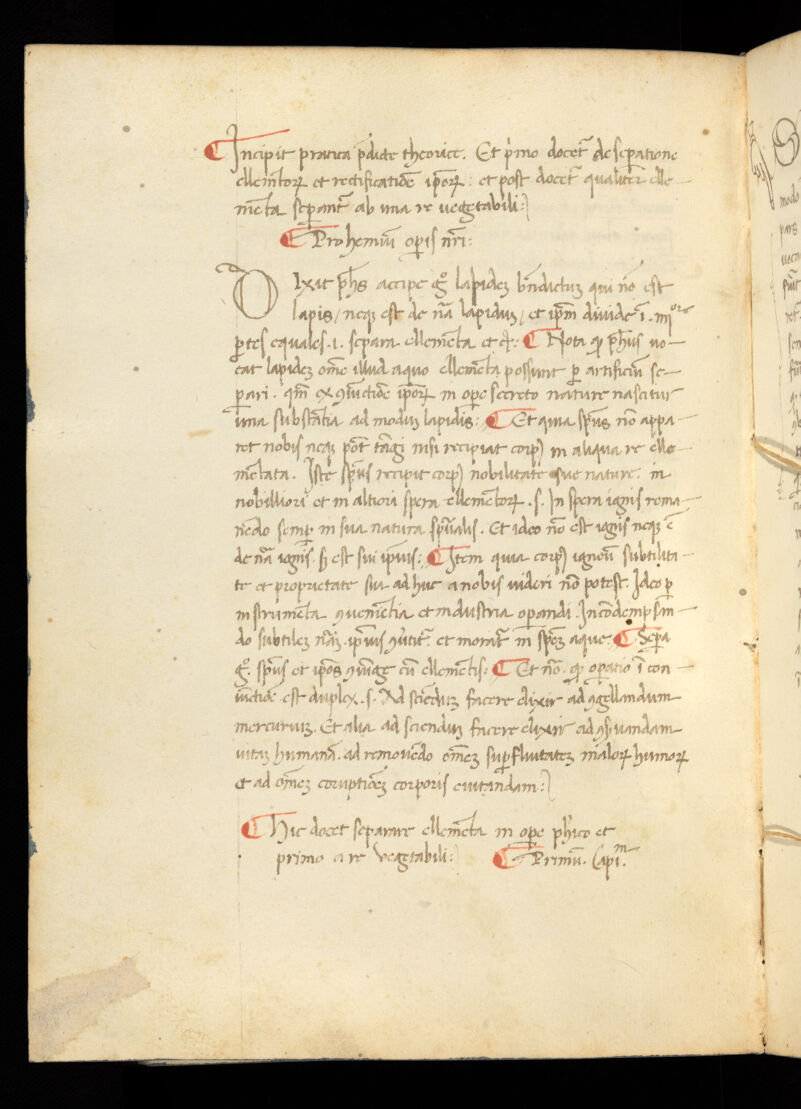 Incipit pratica p̄dicte theorice. Et p̱imo docet̃ de sep̱atione
ellemẽtoꝝ et rectificatiõe ip̱oꝝ : et post docet̃ qualiter elle—
mẽta sep̱ant̃ ab una re uegetabili:
Prohemiũ op̱is nr̃i:
Dixit ph̃s accipe g̊ lapidez bñdictuz qui nõ est
lapis / neqꝫ est de nã lapiduz / et ip̃m diuide ĩ .iiijᵒʳ
p̱tes equales .i. separa ellemẽta et c̃: Nota ꝙ ph̃us uo—
cat lapidez oẽm illud a quo ellemẽta possunt p̱ artificiũ se—
p̱ari . qm̃ ex ꝯiũctiõe ip̱oꝝ in op̱e secreto nature nascitur
una substãtia ad moduz lapidis: Et quia sp̃us nõ appa
ret nobis neqꝫ põt tãgi nisi recipiat corpꝰ in aliqua re elle
mẽtata. Iste sp̃us recipit corpꝰ nobilitate sue nature. in
nobilliori et in altiori spera ellemẽtoꝝ .s. In spera ignis rema—
nẽdo semp̱ in sua natura sp̃ualis. Et ideo nõ est ignis neqꝫ ẽ
de nã ignis. sꝫ est sui ip̃ius: Item quia corpꝰ igneũ subtilita—
te et proprietate sui ad huc a nobis uideri nõ potest. Ideo p̱
instrumẽta ꝯueniẽtia et industria op̱andi.
do subtilez nãz ip̃ius et morat̃ in sp̃ez aque: Sep̱a
g̊. sp̃us et ip̃os ꝯiũge cũ ellemẽtis: Et nõ. ꝙ op̱atio ĩ con—
iũctiõe est duplex .s. Ad sciẽduz facere elixir ad ꝯgellandum
mercuriuz. Et alia ad sciẽduz facere elixir ad ꝯẜuandam
uitaz humanã. ad remouẽdo oẽmez sup̱fluitatez maloꝝ humoꝝ
et ad oẽmez coruptiõez corporis euitandam:
Hic docet separare ellemẽta in op̱e ph̃ico et
primo a re vegetabili: Primũ. Capiᵐ.